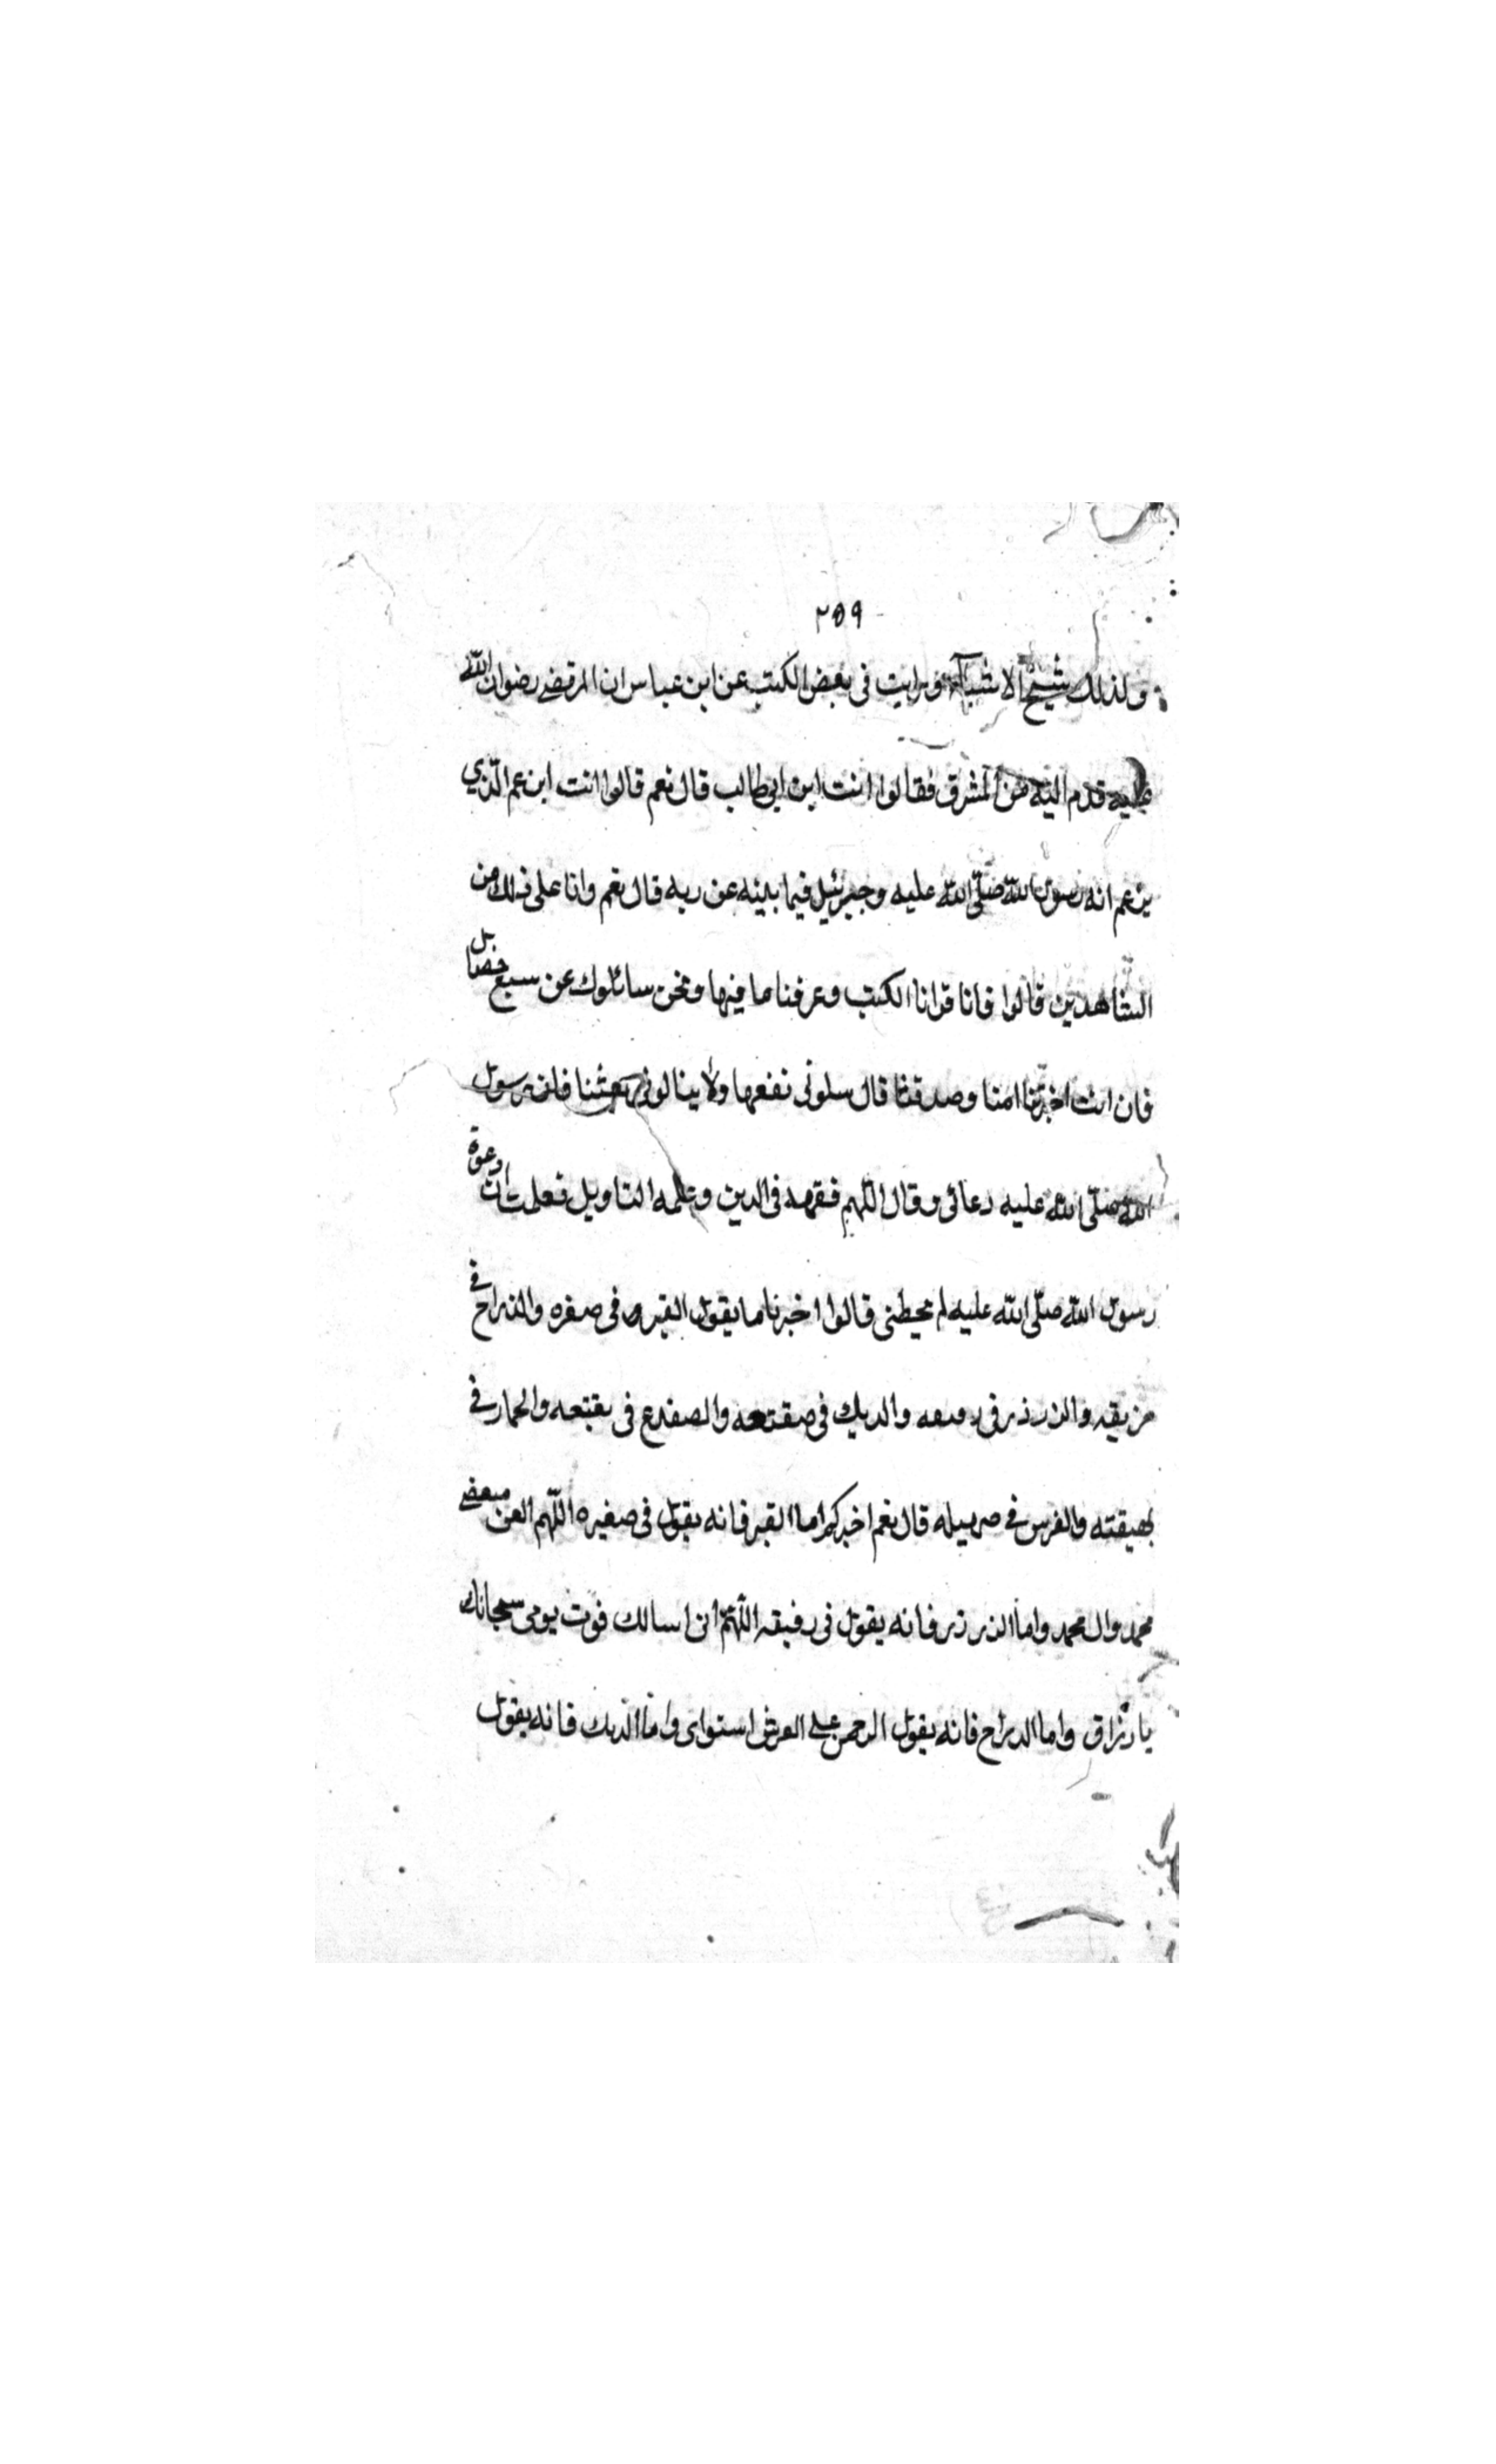 ٢٥٩
ولذلك شيخ الاشباه ورايت في بعض الكتب عن ابن عباس ان المرتضى رضوان الله
عليه قدم اليه من المشرق فقالوا انت ابن ابى طالب قال نعم قالوا انت ابن عم الذي
يزعم انه رسول الله صلى الله عليه وجبرئيل فيما بينه عن ربه قال نعم وانا على ذلك من
الشاهدين قالوا فانا قرانا الكتب وعرفنا ما فيها ونحن سائلوك عن سبع خصال
فان انت اخبرتنا امنا وصدقنا قال سلونى نفعها ولا ينالونى فان رسول
الله صلى الله عليه دعائى وقال اللهم فقهه فى الدين وعلمه التاويل فعلمت ان دعوة
رسول الله صلى الله عليه لم تحيطنى قالوا اخبرنا ما يقول القبره فى صفره والدراح في
مزيقه والزرذر فى والديك فى صقتعه والصفدع فى بقبتعه والحمار في
بهيقته والفرس في صهيله قال نعم اخبركم اما القبر فانه يقول فى صفيره اللهم العن مبغضى
محمد وال محمد واما الزرزر فانه يقول فى رفيقه اللهم انى اسالك قوت يومى سبحانك
يا رزاق واما الدراح فانه يقول الرحمن على العرش استواى واما الديك فانه يقول